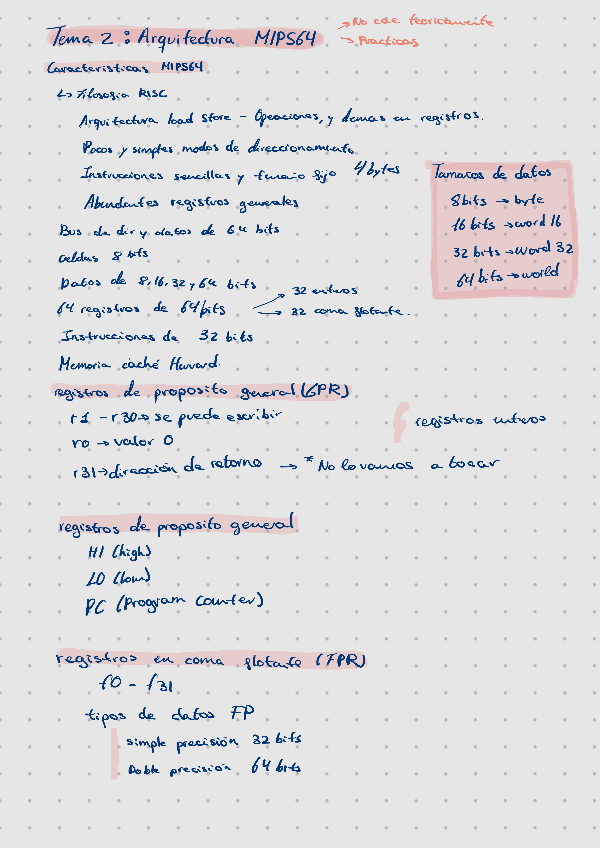 Tema 2: Arquitectura MIPS64
→ No cae teoricamente
→ Practicas
Caracteristicas MIPS64
↳ Filosofia RISC
Arquitectura load Store - Operaciones, y demas en registros.
Pocos y simples modos de direccionamiento
Instrucciones sencillas y tamaño fijo 4 bytes
Abundantes registros generales
Bus de dir y datos de 64 bits
celdas 8 bits
Datos de 8, 16, 32 y 64 bits
64 registros de 64 bits
→ 32 enteros
→ 32 coma flotante.
Instrucciones de 32 bits
Memoria caché Harvard.
Tamaños de datos
8 bits → byte
16 bits → word 16
32 bits → word 32
64 bits → world
registros de proposito general (GPR)
r1 - r30 → se puede escribir
r0 → valor 0
r31 → dirección de retorno → * No lo vamos a tocar
registros enteros
registros de proposito general
HI (high)
LO (low)
PC (Program Counter)
registros en coma flotante (FPR)
f0 - f31
tipos de datos FP
simple precisión 32 bits
Doble precisión 64 bits